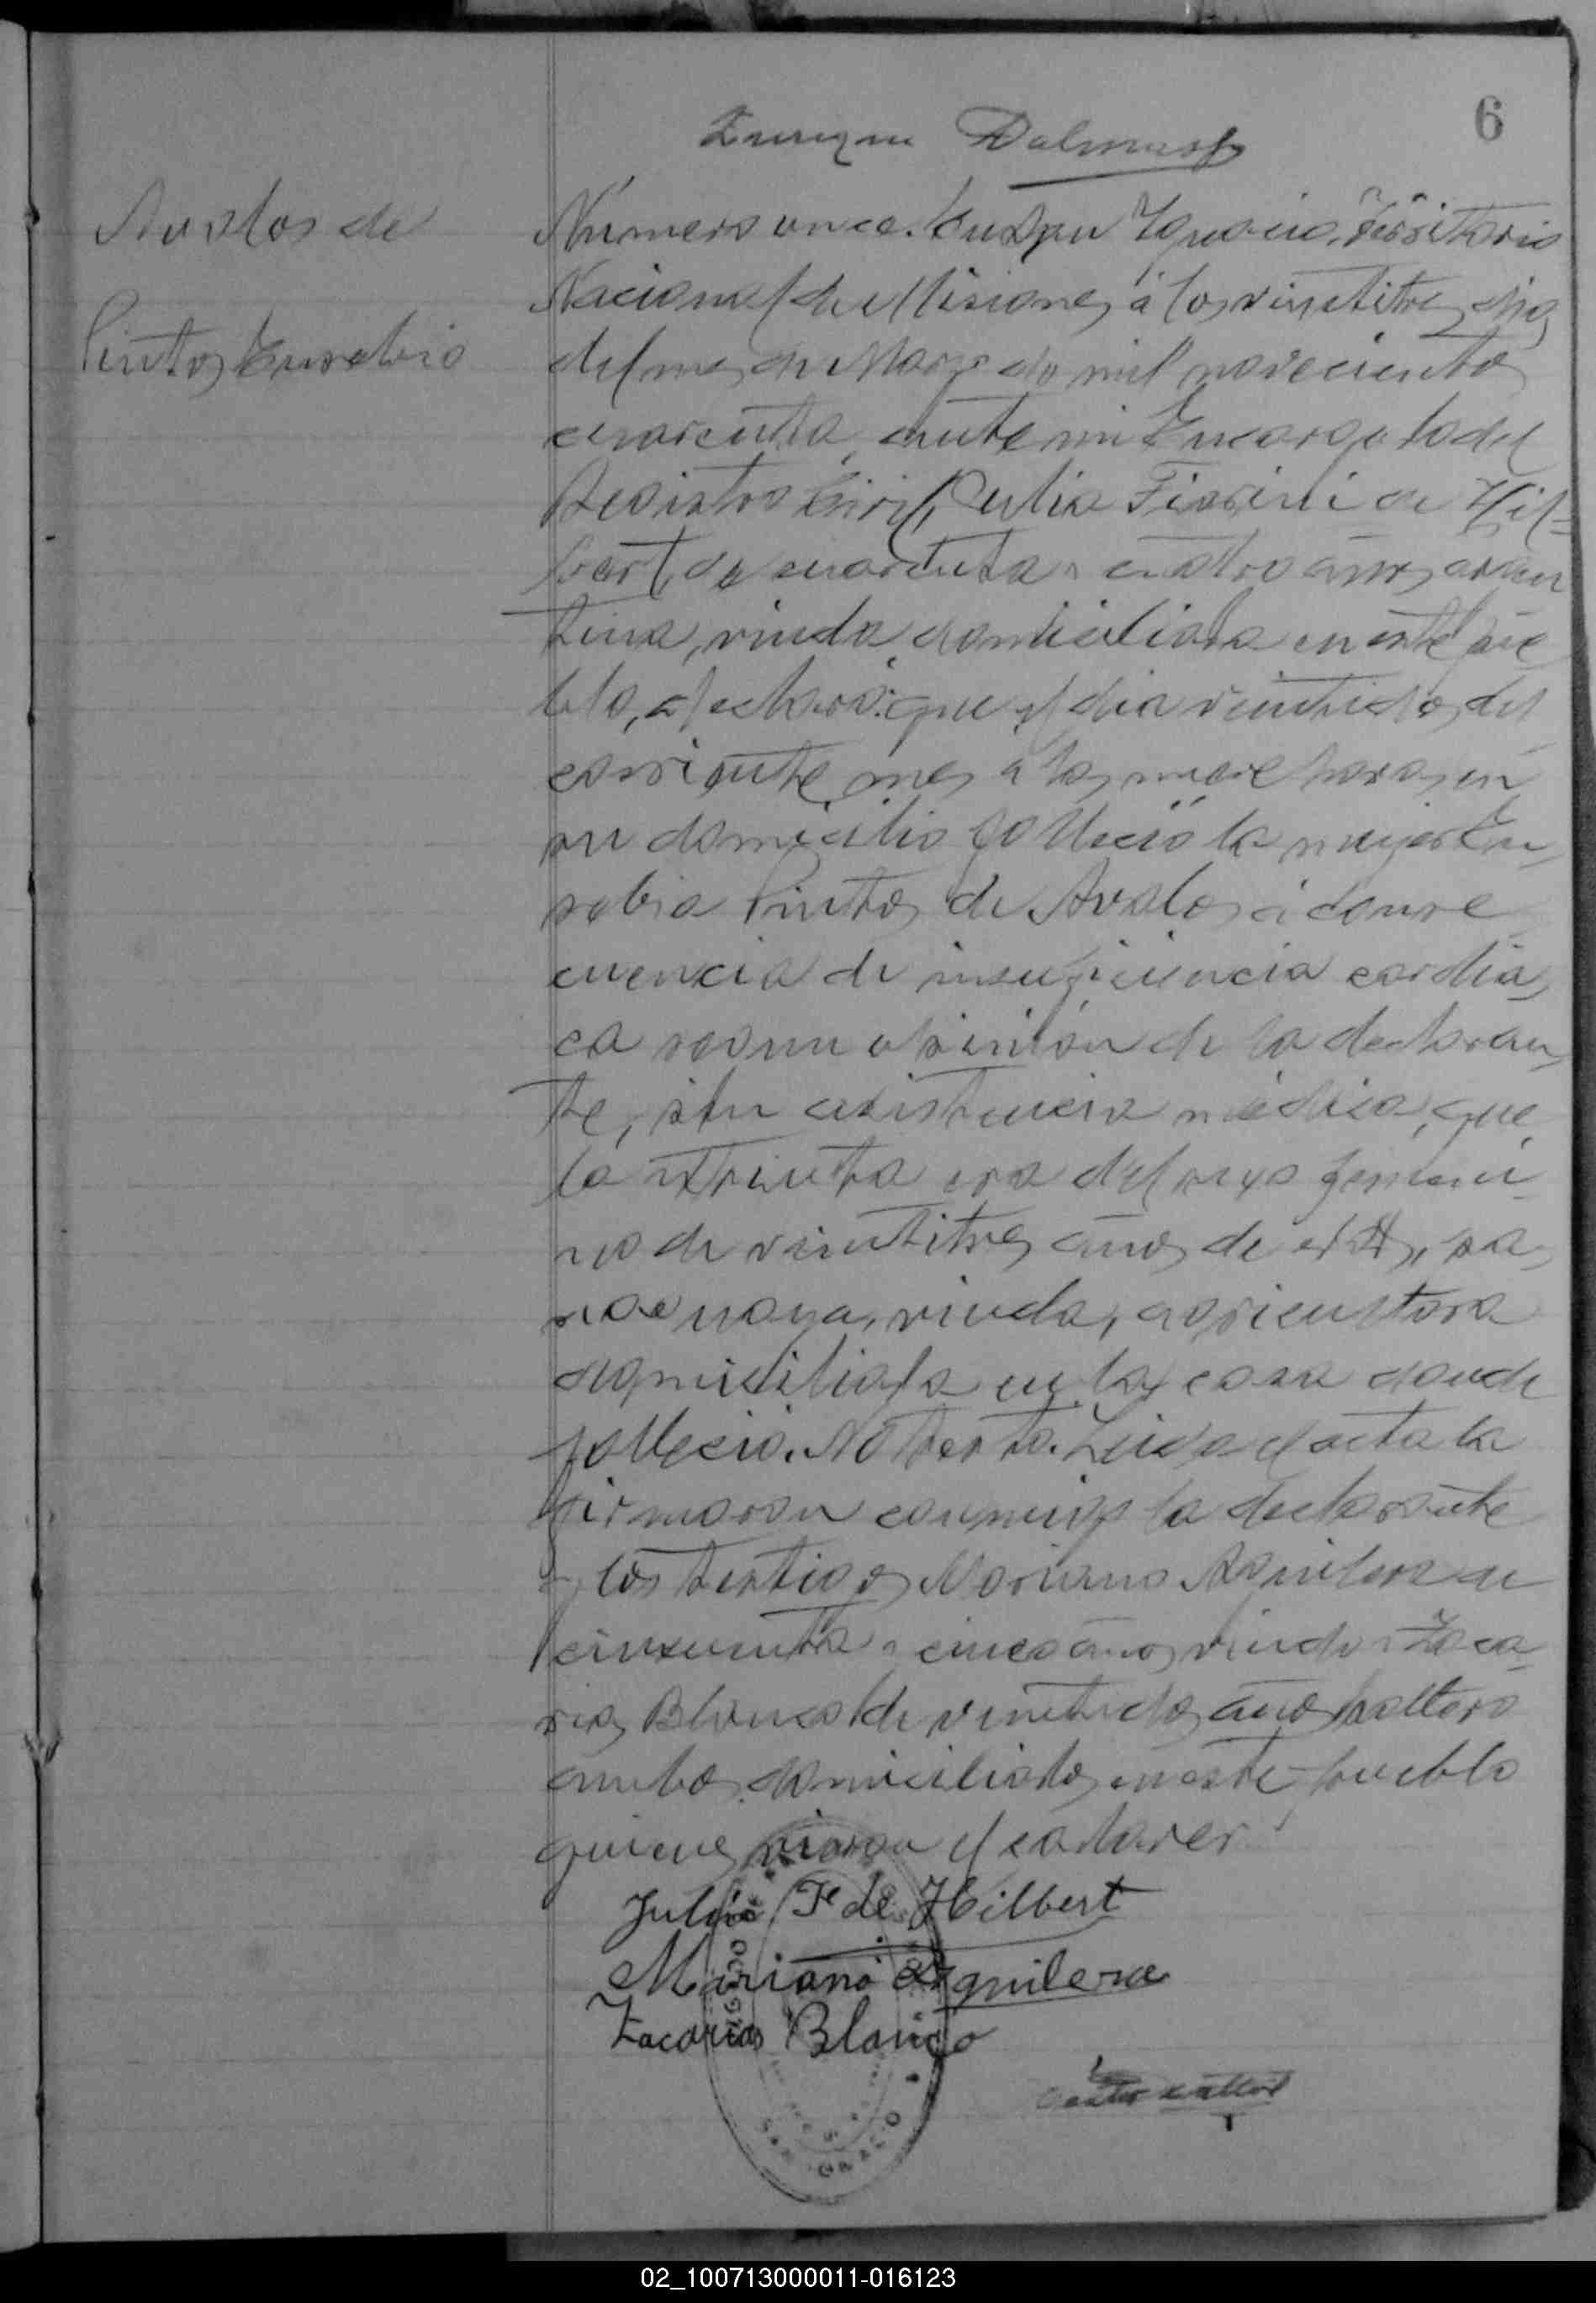 6
Avalos de
Pintos Eusebia
Número once. En San Ignacio, Territorio
Nacional de Misiones, á los veintitres dias
del mes de Marzo de mil novecientos
cuarenta, ante mi Encargado del
Registro Civil, Julia Fiorini de Hil=
bert, de cuarenta y cuatro años, argen
tina, viuda, domiciliada en este pue
blo, declaró: que el dia veintidos del
corriente mes á las nueve horas, en
su domicilio falleció la mujer Eu
sebia Pintos de Avalos á conse
cuencia de insuficiencia cardia
ca segun opinión de la declaran
te, sin asistencia médica, que
la extinta era del sexo femeni
no de veintitres años de edad, pa
raguaya, viuda, agricultora
domiciliada en la casa donde
falleció. No testó. Leida el acta la
firmaron conmigo la declarante
y los testigos Mariano Aguilera de
cincuenta y cinco años, viudo y Zaca
rias Blanco de veintidos años soltero
ambos domiciliados en este pueblo
quienes vieron el cadaver.
Julia F de Hilbert
Mariano Aguilera
Zacarias Blanco
SAN IGNACIO
02_100713000011-016123